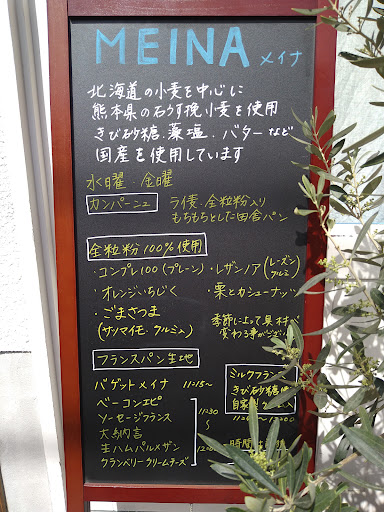 MEINA メイナ
北海道の小麦を中心に
熊本県の石うす挽小麦を使用
きび砂糖.藻塩.バターなど
国産を使用しています
水曜.金曜
カンパーニュ
ライ麦.全粒粉入り
もちもちとした田舎パン
全粒粉100%使用
・コンプレ100(プレーン)
・レザンノア(レーズン クルミ)
・オレンジいちじく
・栗とカシューナッツ
・ごまさつま
(サツマイモ.クルミ入)
季節によって具材が
変わる事がござい
フランスパン生地
バゲットメイナ 11:15〜
ベーコンエピ
ソーセージフランス
大納言
生ハムパルメザン
クランベリークリームチーズ
11:30
〜
12:00
ミルクフランス
きび砂糖
自家製